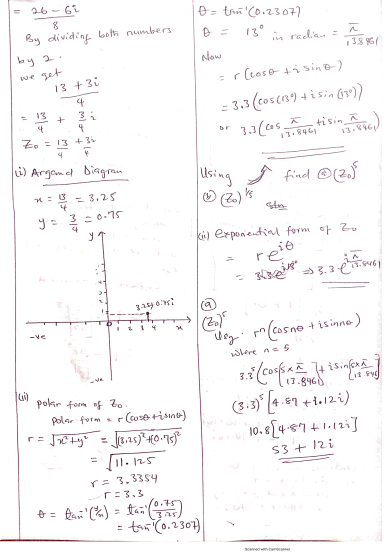 = 26 - 6i / 8
By dividing both numbers
by 2.
we get
13 + 3i / 4
= 13/4 + 3/4 i
Z₀ = 13/4 + 3i/4
(i) Argand Diagram
x = 13/4 = 3.25
y = 3/4 = 0.75
y
3.25, 0.75i
-ve
0 1 2 3 4
x
-ve
(iii) polar form of Z₀.
polar form = r(cosθ + isinθ)
r = √x²+y² = √(3.25)²+(0.75)²
= √11.125
r = 3.3354
r = 3.3
θ = tan⁻¹(y/x) = tan⁻¹(0.75/3.25)
= tan⁻¹(0.2307)
θ = tan⁻¹(0.2307)
θ = 13° in radian = π/13.8461
Now
= r(cosθ + i sinθ)
= 3.3(cos(13°) + i sin(13°))
or 3.3(cos π/13.8461 + i sin π/13.8461)
Using find ⓐ(Z₀)⁵
ⓑ (Z₀)^1/5
(ii) exponential form of Z₀
= re^iθ
⇒ 3.3e^iπ/13.8461
ⓐ
(Z₀)⁵
Using. rⁿ(cosnθ + isinnθ)
where n = 5
3.3⁵(cos[5×π/13.8461] + isin[5×π/13.8461])
(3.3)⁵[4.87 + 1.12i]
10.8[4.87 + 1.12i]
53 + 12i
Scanned with CamScanner